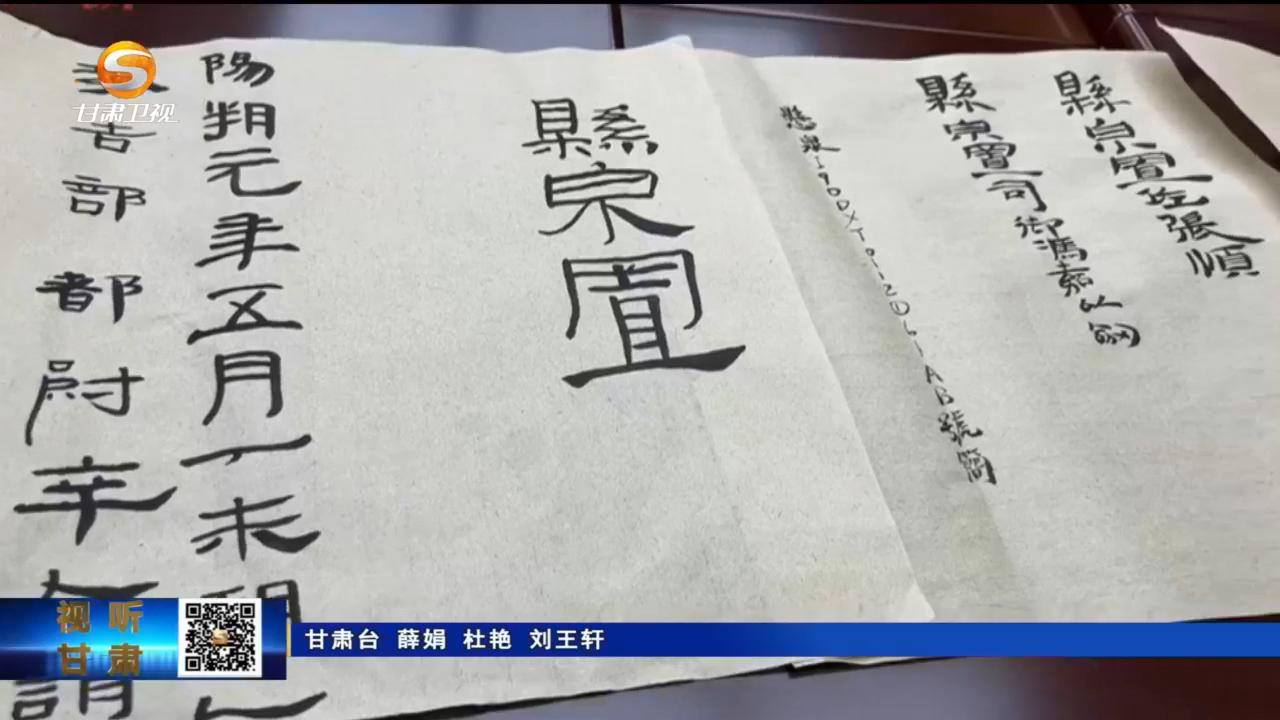 甘肃卫视
縣泉置佐張順
縣泉置司御馮嘉以
懸泉190DXT0112①:61AB號簡
縣泉置
陽朔元年五月丁未朔
部都尉辛
请
视听
甘肃
甘肃台 薛娟 杜艳 刘王轩